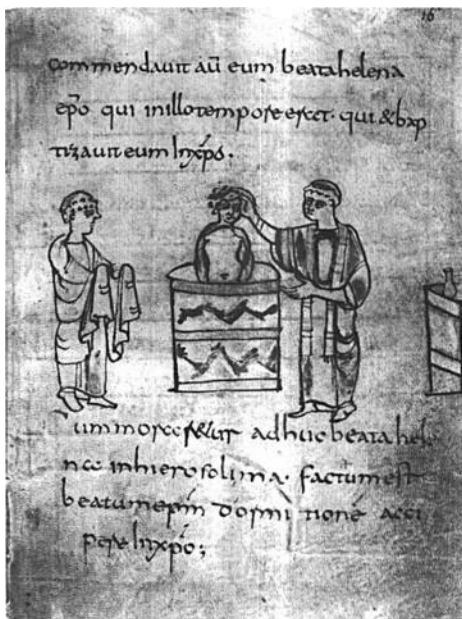 16
commendauit aū eum beatahelena
ep̄o qui inillotempore qui &bap
tizauit eum inxp̄o.
um adhuc beata hele
na inhierosolima. factum est
beatum ep̄m dormi tionē acci
pere inxp̄o;